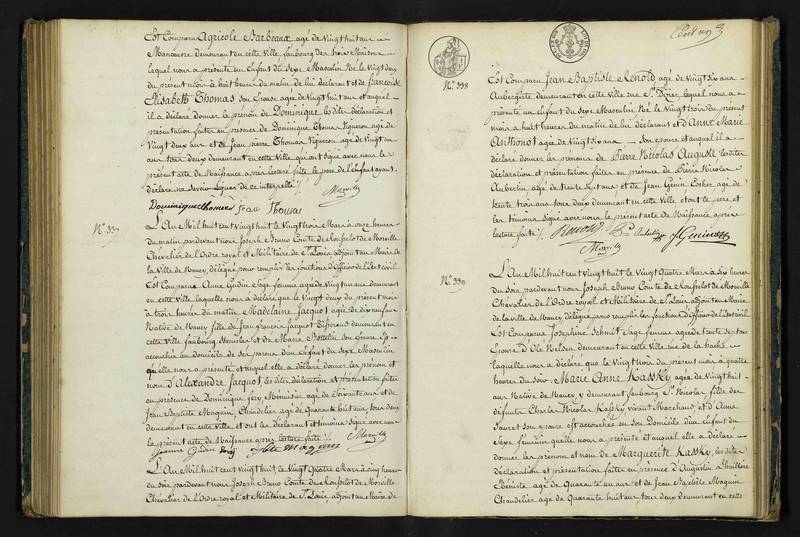 Est Comparu Agricole Barbeaux agé de Vingt huit ans
Manoeuvre demeurant en cette Ville faubourg des trois Maisons
lequel nous a présenté un Enfant du Sexe Masculin Né le Vingt deux
du présent mois à huit heures du matin de lui déclarant et de françoise
Elisabeth Thomas son Epouse agée de Vingt huit ans et auquel
il a déclaré donner le prénom de Dominique les dites déclaration et
présentation faites en présence de Dominique Thomas Vigneron agé de
Vingt deux ans et de Jean pierre Thomas Vigneron agé de Vingt un
ans tous deux demeurant en cette Ville qui ont signé avec nous le
présent acte de Naissance après lecture faite le pere de l'Enfant ayant
déclaré ne Savoir Signer de ce interpellé
Dominique thomas Jean Thomas
No. 337
L'An Mil huit cent Vingt huit le Vingt trois Mars à onze heures
du matin pardevant nous Joseph Bruno Comte de
Chevalier de l'Ordre royal et Militaire de St. Louis, adjoint au Maire de
la Ville de Nancy, délégué pour remplir les fonctions d'Officier de l'Etat civil
Est Comparue Anne Gudin Sage femme agée de Vingt un ans demeurant
en cette Ville laquelle nous a déclaré que le Vingt deux du présent mois
à trois heures du matin Madelaine Jacquot agée de dix neuf ans
Native de Nancy fille de Jean francois Jacquot demeurant en
cette Ville faubourg Stanislas et de Marie son Epouse Est
accouchée au domicile de ses parens d'un Enfant du Sexe Masculin
qu'elle nous a présenté et auquel elle a déclaré donner les prénom et
nom d'Alexandre Jacquot, les dites déclaration et présentation faites
en présence de Dominique Menuisier agé de Soixante ans et de
Jean Baptiste Maguin, Chandelier agé de Quarante huit ans, tous deux
demeurant en cette Ville et ont les déclarant et témoins signé avec nous
le présent acte de Naissance après lecture faite
Jeanne Gudin Jbte Maguin
L'An Mil huit cent Vingt huit le Vingt quatre Mars à cinq heures
du soir pardevant nous Joseph Bruno Comte de
Chevalier de l'Ordre royal et Militaire de St. Louis, adjoint au Maire de
No. 338
Est Comparu Jean Baptiste Renold agé de Vingt Six ans
Aubergiste demeurant en cette Ville rue St. Dizier, lequel nous a
présenté un Enfant du Sexe Masculin Né le Vingt trois du présent
mois à huit heures du matin de lui déclarant et d'Anne Marie
Anthonot agée de Vingt Six ans son Epouse et auquel il a
déclaré donner les prénoms de Pierre Nicolas Auguste les dites
déclaration et présentation faites en présence de Pierre Nicolas
Aubertin agé de trente Sept ans et de Jean Genin Cocher agé de
trente trois ans tous deux demeurant en cette Ville et ont le pere et
les témoins Signé avec nous le présent acte de Naissance après
lecture faite
Renold Aubertin J. Genin
No. 339
L'An Mil huit cent Vingt huit le Vingt Quatre Mars à Six heures
du Soir, pardevant nous Joseph Bruno Comte de
Chevalier de l'Ordre royal et Militaire de St. Louis, adjoint au Maire
de la ville de Nancy, délégué pour remplir les fonctions d'Officier de l'Etat civil
Est Comparue Josephine Schmit Sage femme agée de trente Six ans
Epouse d' demeurant en cette Ville rue de la hache
laquelle nous a déclaré que le Vingt trois du présent mois à quatre
heures du Soir Marie Anne Kassky, agée de Vingt huit
ans Native de Nancy, y demeurant faubourg St. Nicolas fille des
défunts Charles Nicolas Kassky vivant et d'Anne
son Epouse est accouchée en son Domicile d'un Enfant du
Sexe féminin qu'elle nous a présenté et auquel elle a déclaré
donner les prénom et nom de Marguerite Kassky, les dites
déclaration et présentation faites en présence d'Augustin
Ebéniste agé de Quarante un ans et de Jean Baptiste Maguin
Chandelier agé de Quarante huit ans, tous deux demeurant en cette